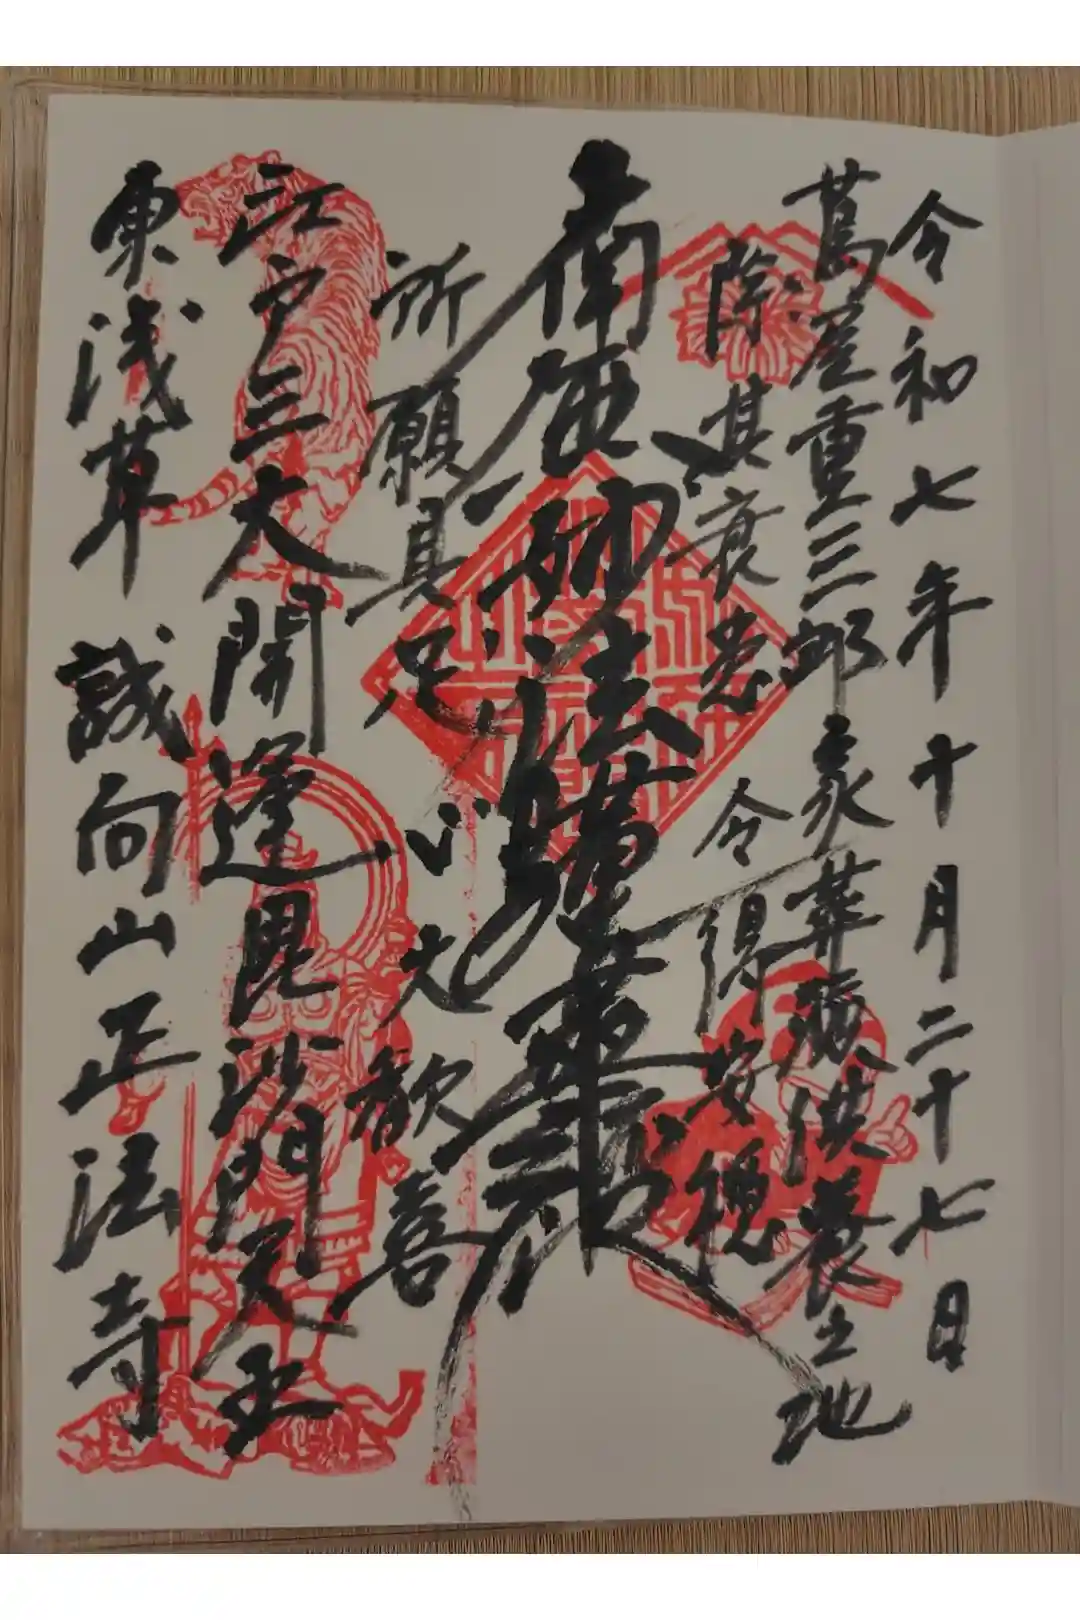 令和七年十月二十七日
蔦屋重三郎家葬祭供養之地
除其衰患 令得安穏
南無妙法蓮華経
所願具足 心大歓喜
江戸三大開運毘沙門天王
東浅草 誠向山正法寺